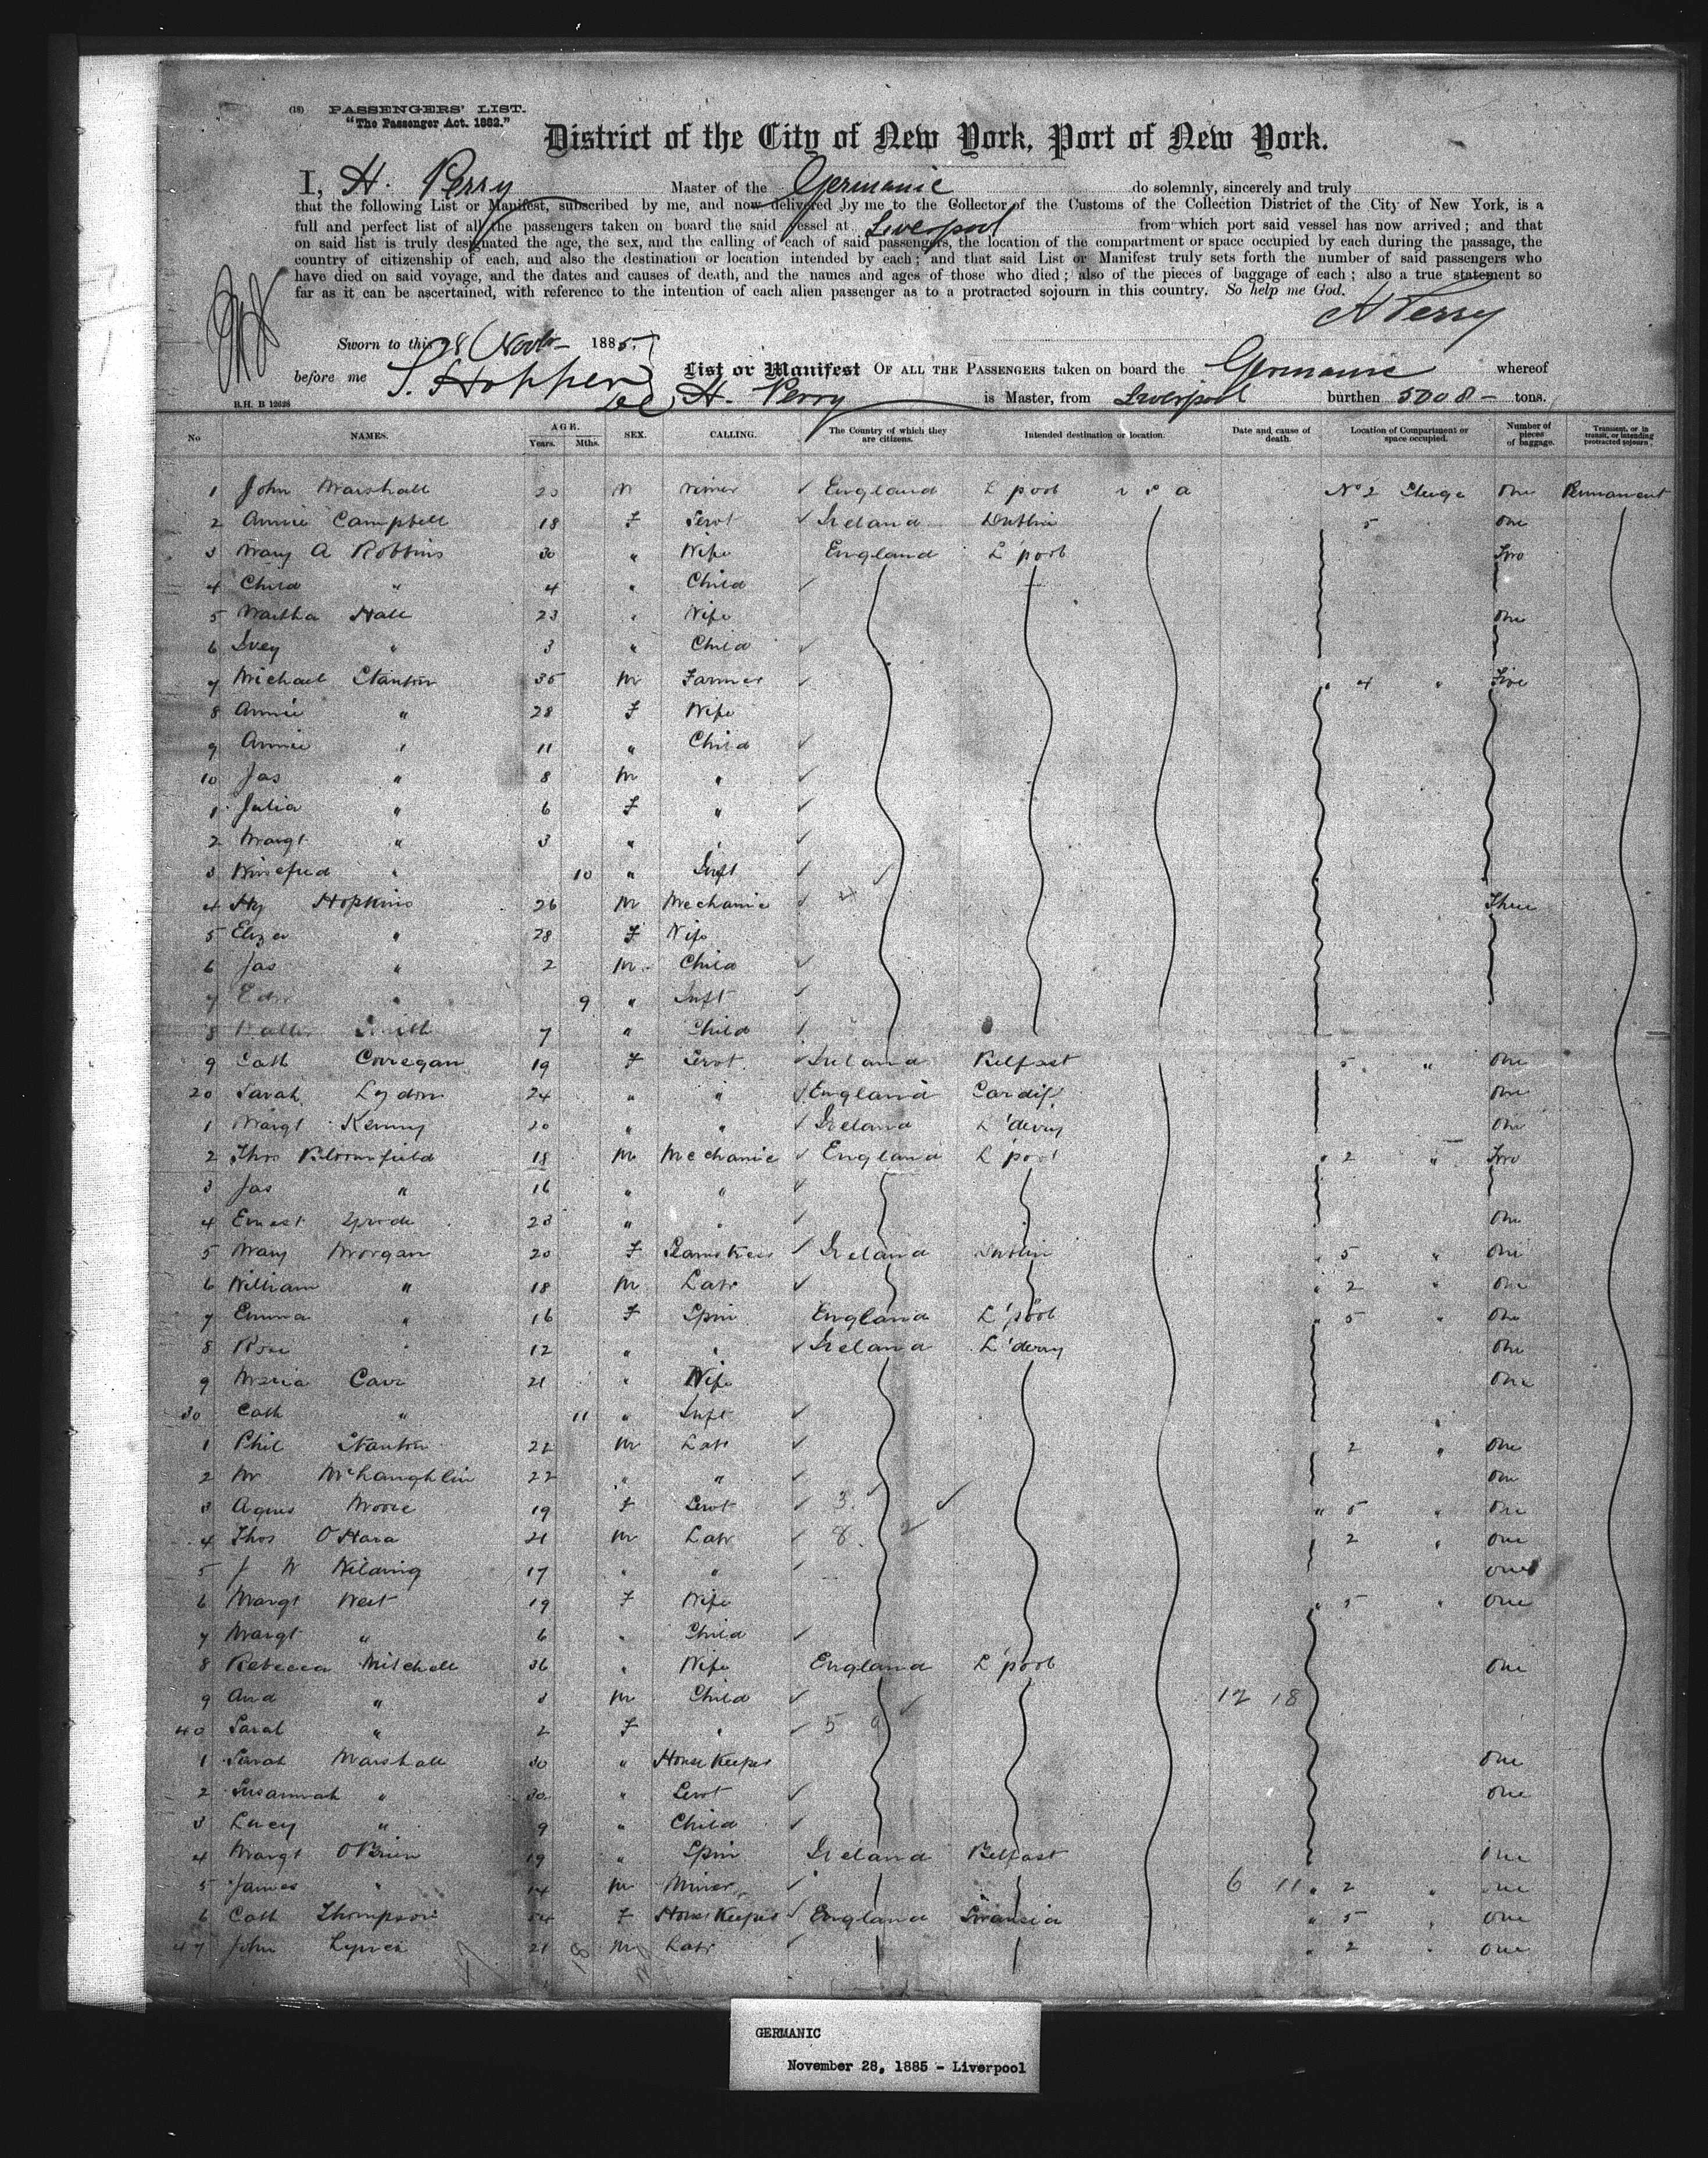 (18) PASSENGERS' LIST.
"The Passenger Act. 1882."
District of the City of New York, Port of New York.
I, H. Perry Master of the Germanic do solemnly, sincerely and truly
that the following List or Manifest, subscribed by me, and now delivered by me to the Collector of the Customs of the Collection District of the City of New York, is a
full and perfect list of all the passengers taken on board the said vessel at Liverpool from which port said vessel has now arrived; and that
on said list is truly designated the age, the sex, and the calling of each of said passengers, the location of the compartment or space occupied by each during the passage, the
country of citizenship of each, and also the destination or location intended by each; and that said List or Manifest truly sets forth the number of said passengers who
have died on said voyage, and the dates and causes of death, and the names and ages of those who died; also of the pieces of baggage of each; also a true statement so
far as it can be ascertained, with reference to the intention of each alien passenger as to a protracted sojourn in this country. So help me God.
H Perry
Sworn to this 28 Novr 1885
before me S. Hopper List or Manifest OF ALL THE PASSENGERS taken on board the Germanic whereof
B.H. B 12626 H. Perry is Master, from Liverpool burthen 5008 - tons.
No NAMES. AGE. Years. Mths. SEX. CALLING. The Country of which they are citizens. Intended destination or location. Date and cause of death. Location of Compartment or space occupied. Number of pieces of baggage. Transient, or in transit, or intending protracted sojourn.
1 John Marshall M Miner England L'pool No 2 Steerge One Permanent
2 Annie Campbell 18 F Servt Ireland Dublin 5 One
3 Mary A Robbins 30 " Wife England L'pool Two
4 Child " 4 " Child
5 Martha Hall 23 " Wife One
6 " 3 " Child
7 Michael Stanton 35 M Farmer " 4 " Five
8 Annie " 28 F Wife
9 Annie " 11 " Child
10 Jas " 8 M "
1 Julia " 6 F "
2 Margt " 3 " "
3 Winefred " 10 " Inft
4 Hy Hopkins 26 M Mechanic Three
5 Eliza " 28 F Wife
6 Jas " 2 M Child
7 " 9 " Inft
8 Smith 7 " Child
9 Cath Corregan 19 F Servt Ireland Belfast 5 " One
20 Sarah Lydon 24 " " England Cardiff One
1 Margt Kenny 20 " " Ireland L'derry One
2 Thos Bloomfield 18 M Mechanic England L'pool " 2 " Two
3 Jas " 16 " "
4 Ernest 23 " " One
5 Mary Morgan 20 F Seamstress Ireland Dublin " 5 " One
6 William " 18 M Labr " 2 " One
7 Emma " 16 F Spin England L'pool " 5 " One
8 Rose " 12 " " Ireland L'derry One
9 Maria Carr 21 " Wife One
30 Cath " 11 " Inft
1 Phil Stanton 22 M Labr 2 " One
2 Mr McLaughlin 22 " " One
3 Agnes Moore 19 F Servt 3 " 5 " One
4 Thos O'Hara 21 M Labr 8 2 " One
5 J W Wilding 17 " " One
6 Margt West 19 F Wife " 5 " One
7 Margt " 6 " Child
8 Rebecca Mitchell 36 " Wife England L'pool One
9 And " 3 M Child 12 18
40 Sarah " 2 F " 5
1 Sarah Marshall 30 " HouseKeeper One
2 Susannah " 30 " Servt One
3 Lucy " 9 " Child
4 Margt O'Brien 19 " Spin Ireland Belfast One
5 James " 14 M Miner 6 11 " 2 " One
6 Cath Thompson F HouseKeeper England Swansea " 5 " One
47 John Lynch 21 M Labr " 2 " One
GERMANIC
November 28, 1885 - Liverpool